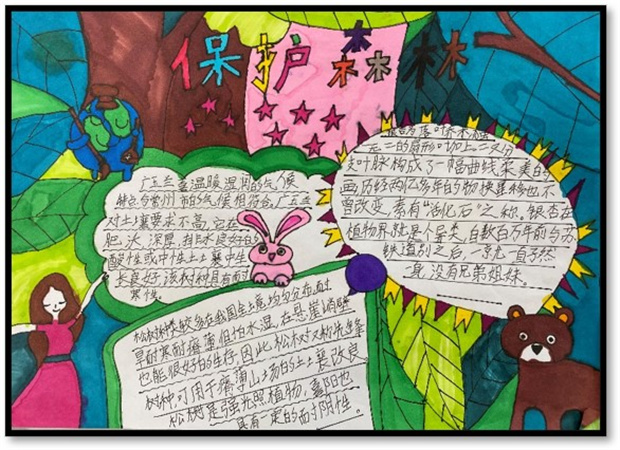 保护森林
广玉兰喜温暖湿润的气候
特点与常州市的气候相符合。广玉兰
对土壤要求不高,它在
肥沃、深厚、排水良好的
酸性或中性土土襄中生
长良好。该树种具有耐
寒性。
落叶乔木
元二的扇形叶加上二叉分
支叶脉构成了一幅曲线柔美的
画,历经两亿多年的物换星移也不
曾改变,素有“活化石”之称。银杏在
植物界就是个异类,自数百万年前与苏
铁道别之后,一就一直孑然
一身,没有兄弟姐妹。
松树种类较多在我国土境均匀分布,耐
旱耐寒耐瘠薄但怕水湿,在悬崖峭壁
也能很好的生存,因此,松树又称先锋
树种可用于瘠薄山场的土襄改良
松树是强光照植物,喜阳也
具有一定的耐阴性。